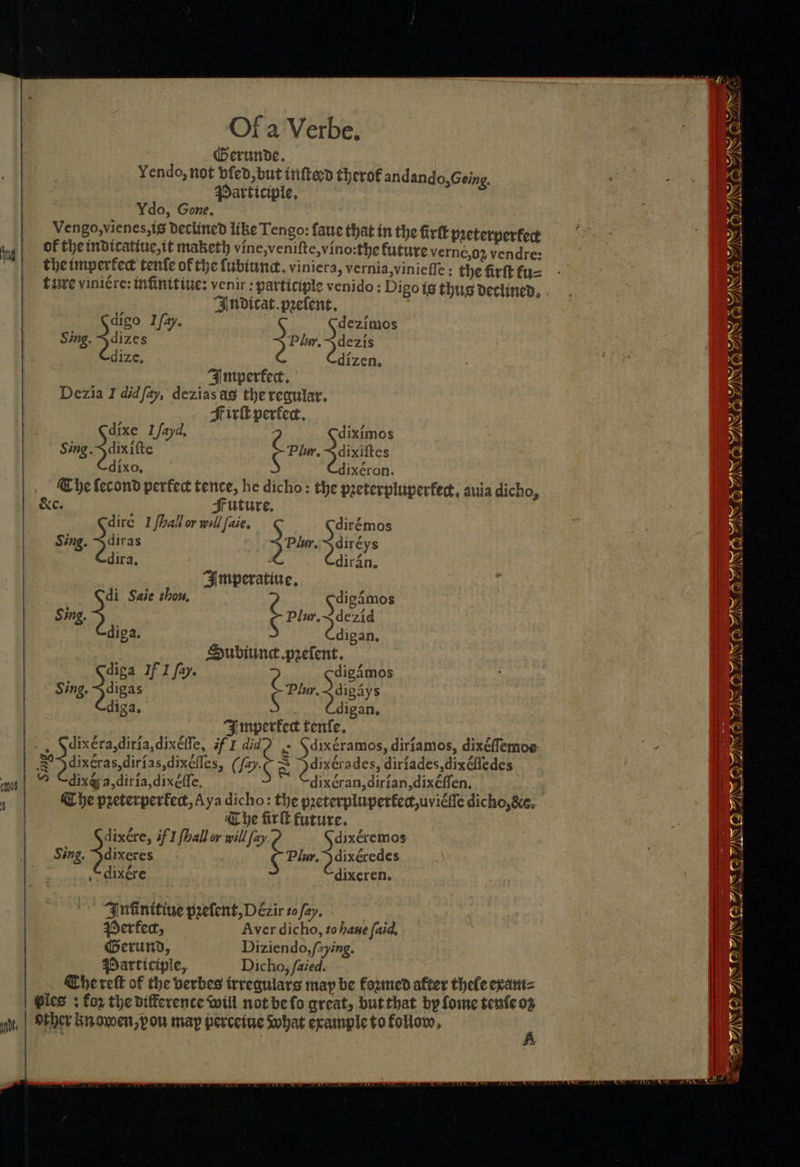 Of a Verbe.
Gerunde.
Yendo, not vsed, but insteed therof andando, Going.
Participle.
Ydo, Gone.
Vengo, vienes, is declined like Tengo: saue that in the first preterperfect
of the indicatiue, it maketh vine, veniste, vino: the future verné, or vendre:
the imperfect tense of the subiunct. viniera, vernia, viniesse: the first fu-
ture viniére: infinitiue: venir: participle venido: Digo is thus declined.
Indicat. present.
Sing. digo I say. Plur. dezímos
dizes dezís
dize, dízen,
Imperfect.
Dezia I did say, dezias as the regular.
First perfect.
Sing. díxe I sayd, Plur. diximos
dixiste dixistes
díxo, dixéron.
The second perfect tence, he dicho: the preterpluperfect, auia dicho,
&c. Future.
Sing. diré I shall or will saie, Plur. dirémos
diras diréys
dira, dirán,
Imperatiue.
Sing. di Saie thou, Plur. digámos
dezíd
diga. digan,
Subiunct. present.
Sing. diga If I say. Plur. digámos
digas digáys
diga, digan,
Imperfect tense.
dixéra, diría, dixésse, if I did dixéramos, diríamos, dixéssemos
dixéras, dirías, dixésses, (say. dixérades, diríades, dixéssedes
dixera, diría, dixésse, dixéran, dirían, dixéssen,
The preterperfect, Aya dicho: the preterpluperfect, uviésse dicho, &c.
The first future.
Sing. dixére, if I shall or will say Plur. dixéremos
dixeres dixéredes
dixére dixeren.
Infinitiue present, Dézir to say.
Perfect, Aver dicho, to haue said,
Gerund, Diziendo, saying.
Participle, Dicho, saied.
The rest of the verbes irregulars may be formed after these exam-
ples: for the difference will not be so great, but that by some tense or
other knowen, you may perceiue what example to follow,
A